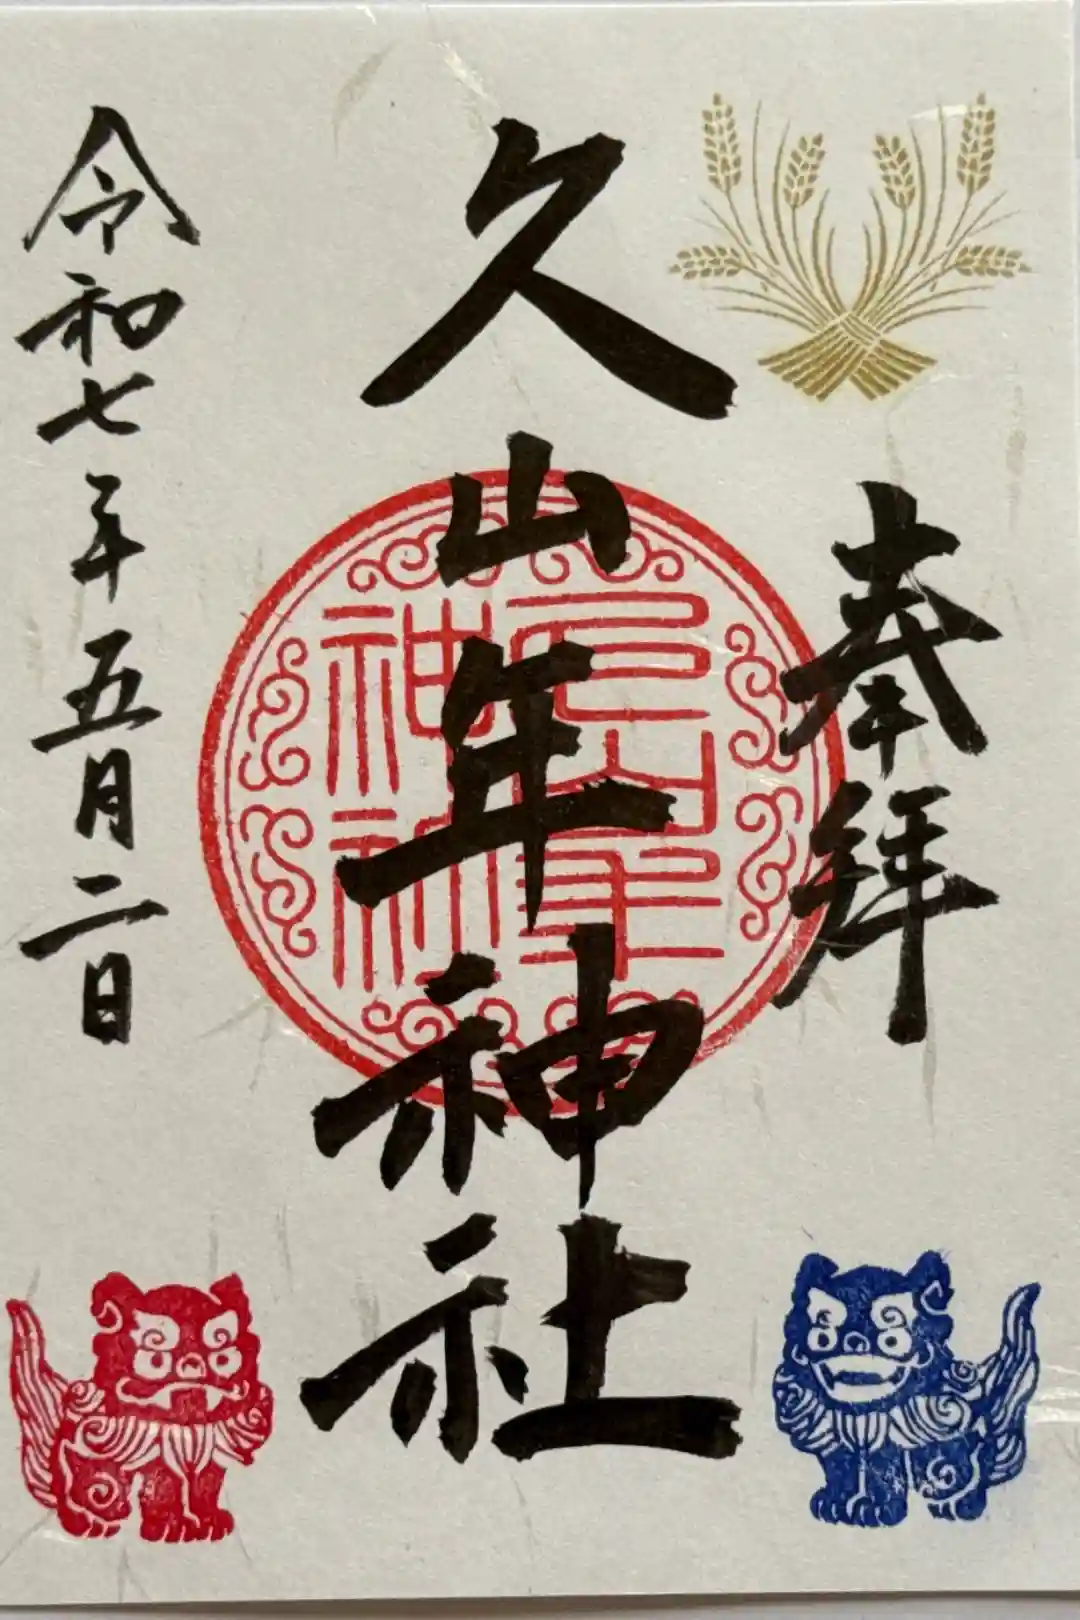 奉拝
久山年神社
久山年
神社
令和七年五月二日